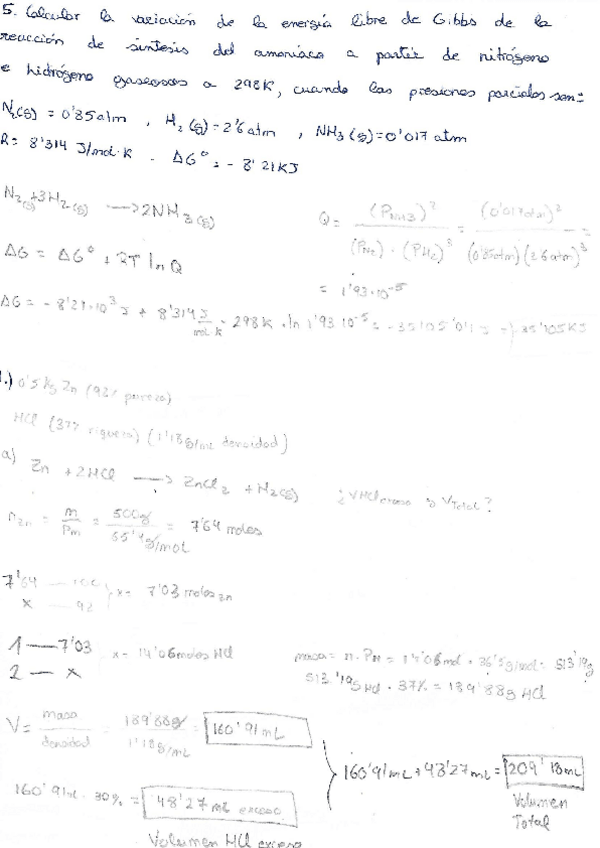 5. Calcular la variación de la energía libre de Gibbs de la
reacción de síntesis del amoníaco a partir de nitrógeno
e hidrógeno gaseosos a 298K, cuando las presiones parciales son:
N₂(g) = 0'85 atm , H₂(g) = 2'6 atm , NH₃(g) = 0'017 atm
R = 8'314 J/mol·K - ΔG° = -8'21 KJ
N₂(g) + 3H₂(g) → 2NH₃(g)
Q = (P_NH3)² / (P_N2) · (P_H2)³ = (0'017atm)² / (0'85atm)(2'6atm)³ =
= 1'93·10⁻⁵
ΔG = ΔG° + RT ln Q
ΔG = -8'21·10³ J + 8'314 J/mol·K · 298K · ln 1'93·10⁻⁵ =
1.) 0'5 Kg Zn (92% pureza)
HCl (37% riqueza) (1'18g/mL densidad)
a) Zn + 2HCl → ZnCl₂ + H₂(g) ¿V HCl exceso y V Total?
n Zn = m/Pm = 500g / 65'4g/mol = 7'64 moles
7'64 — 100
x — 92
x = 7'03 moles Zn
1 — 7'03
2 — x
x = 14'06 moles HCl
masa = n · PM = 14'06mol · 36'5g/mol = 513'19g
513'19g HCl · 37% = 189'88g HCl
V = masa/densidad = 189'88g / 1'18g/mL = 160'91mL
160'91mL · 30% = 48'27 mL exceso
Volumen HCl exceso
160'91mL + 48'27mL = 209'18mL
Volumen
Total